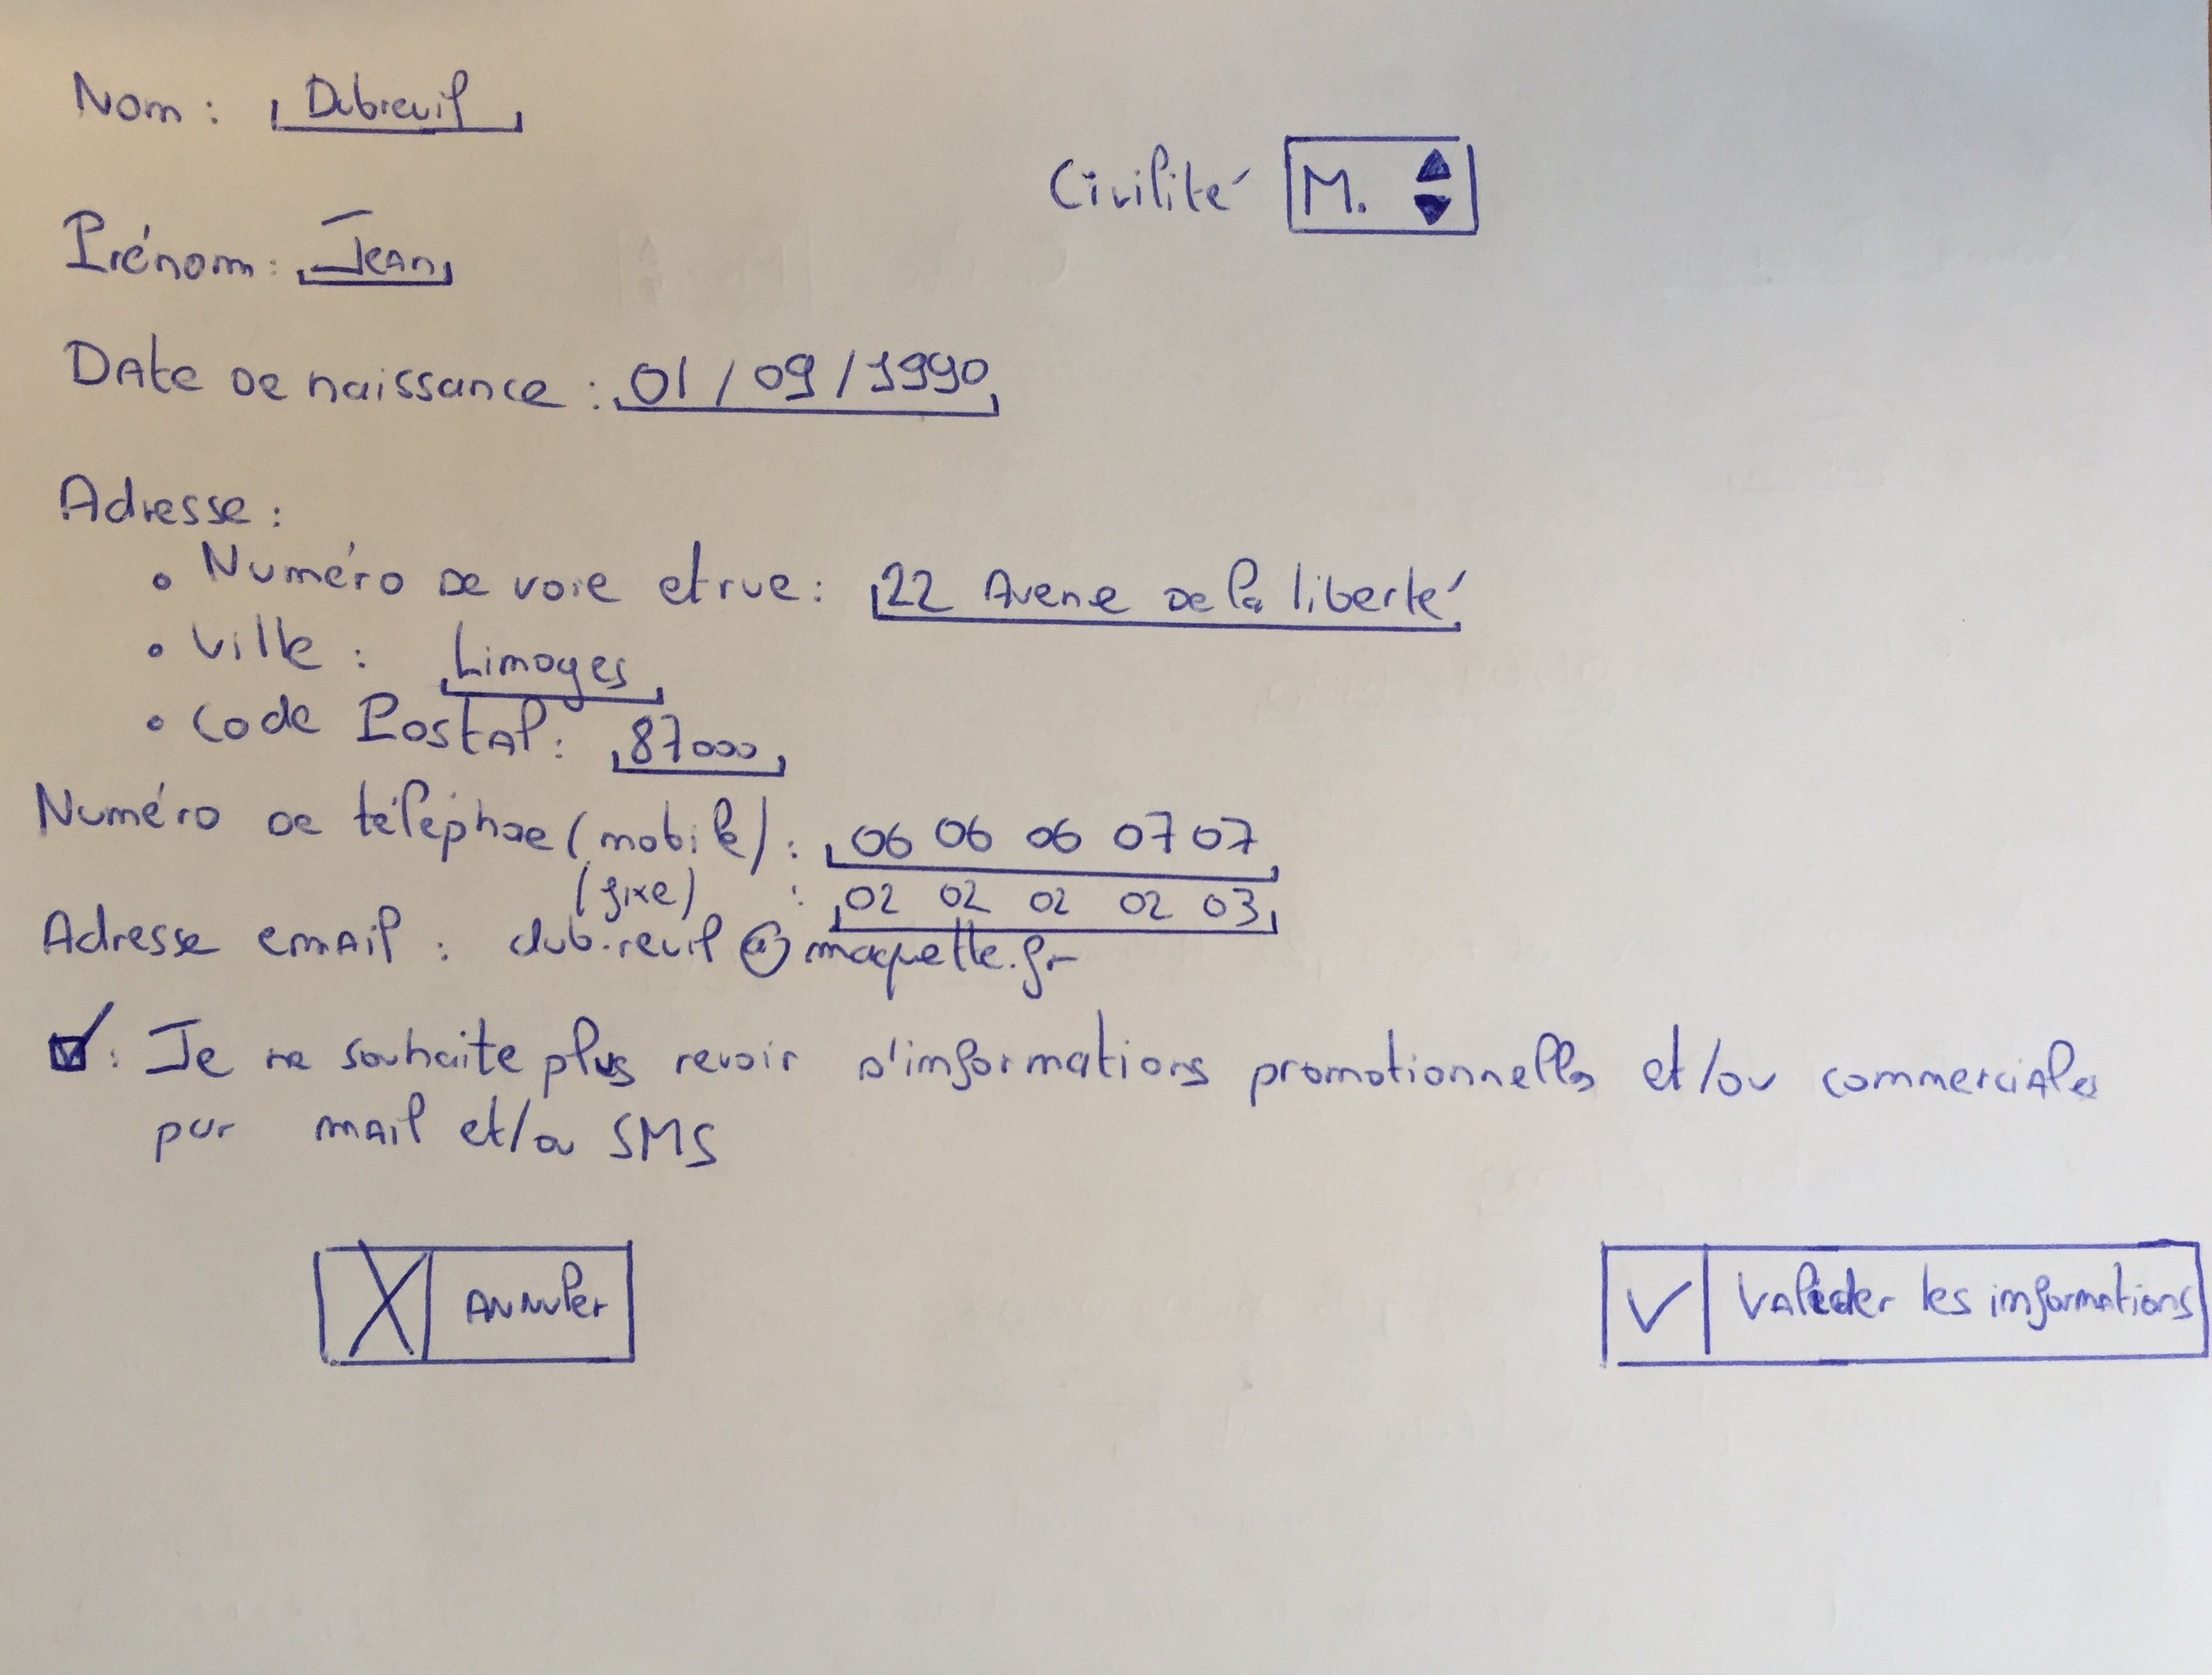 Nom : Dubreuil
Civilité M.
Prénom : Jean
Date de naissance : 01/09/1990
Adresse :
• Numéro de voie et rue : 22 Avenue de la liberté
• Ville : Limoges
• Code Postal : 87000
Numéro de téléphoe (mobile) : 06 06 06 07 07
(fixe) : 02 02 02 02 03
Adresse email : dub.reuil@maquette.fr
: Je ne souhaite plus revoir d'informations promotionnelles et/ou commerciales
par mail et/ou SMS
X Annuler
Valider les informations